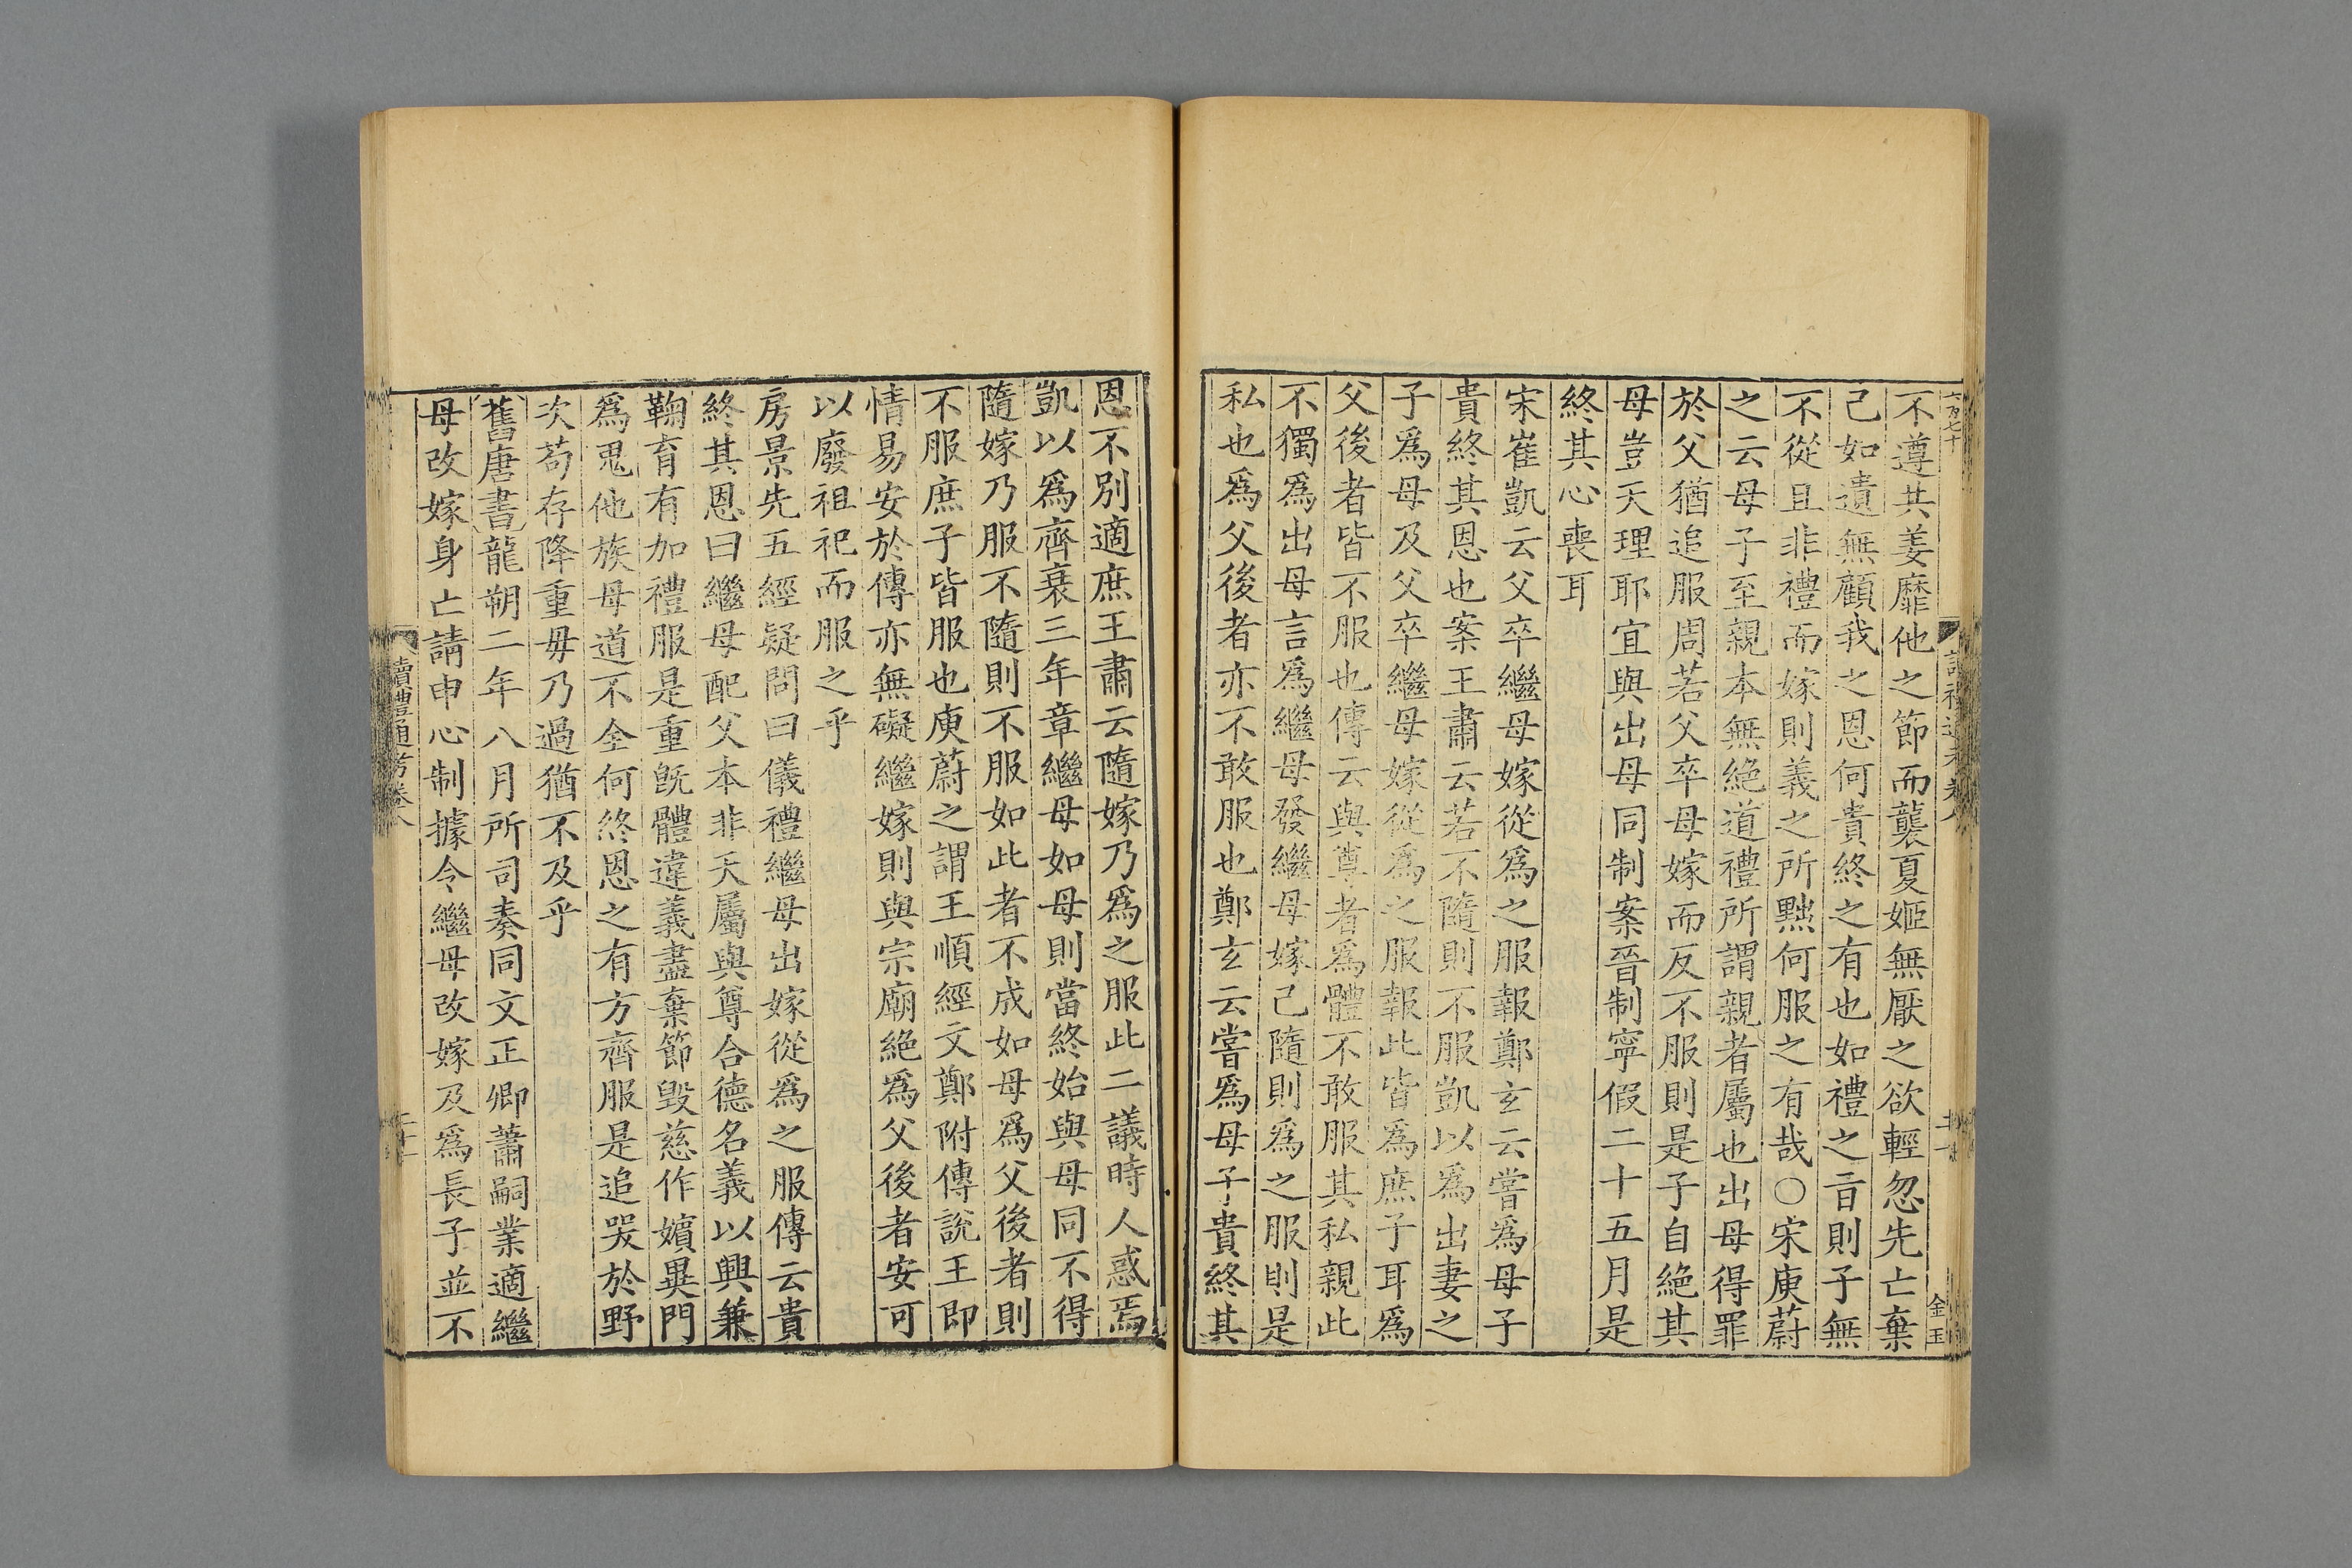 不遵共姜靡他之節而襲夏姬無厭之欲輕忽先亡棄
己如遺無顧我之恩何貴終之有也如禮之㫖則子無
不從且非禮而嫁則義之所黜何服之有哉○宋庾蔚
之云母子至親本無絕道禮所謂親者屬也出母得罪
於父猶追服周若父卒母嫁而反不服則是子自絕其
母豈天理耶宜與出母同制案晉制寧假二十五月是
終其心喪耳
宋崔凱云父卒繼母嫁從爲之服報鄭玄云嘗爲母子
貴終其恩也案王肅云若不隨則不服凱以爲出妻之
子爲母及父卒繼母嫁從爲之服報此皆爲庶子耳爲
父後者皆不服也傳云與尊者爲體不敢服其私親此
不獨爲出母言爲繼母發繼母嫁己隨則爲之服則是
私也爲父後者亦不敢服也鄭玄云嘗爲母子貴終其
恩不別適庶王肅云隨嫁乃爲之服此二議時人惑焉
凱以爲齊衰三年章繼母如母則當終始與母同不得
隨嫁乃服不隨則不服如此者不成如母爲父後者則
不服庶子皆服也庾蔚之謂王順經文鄭附傳說王即
情易安於傳亦無礙繼嫁則與宗廟絕爲父後者安可
以廢祖祀而服之乎
房景先五經疑問曰儀禮繼母出嫁從爲之服傳云貴
終其恩曰繼母配父本非天屬與尊合德名義以興兼
鞠育有加禮服是重旣體違義盡棄節毀慈作嬪異門
爲鬼他族母道不全何終恩之有方齊服是追哭於野
次苟存降重毋乃過猶不及乎
舊唐書龍朔二年八月所司奏同文正卿蕭嗣業適繼
母改嫁身亡請申心制據令繼母改嫁及爲長子並不
讀禮通考卷八
金玉